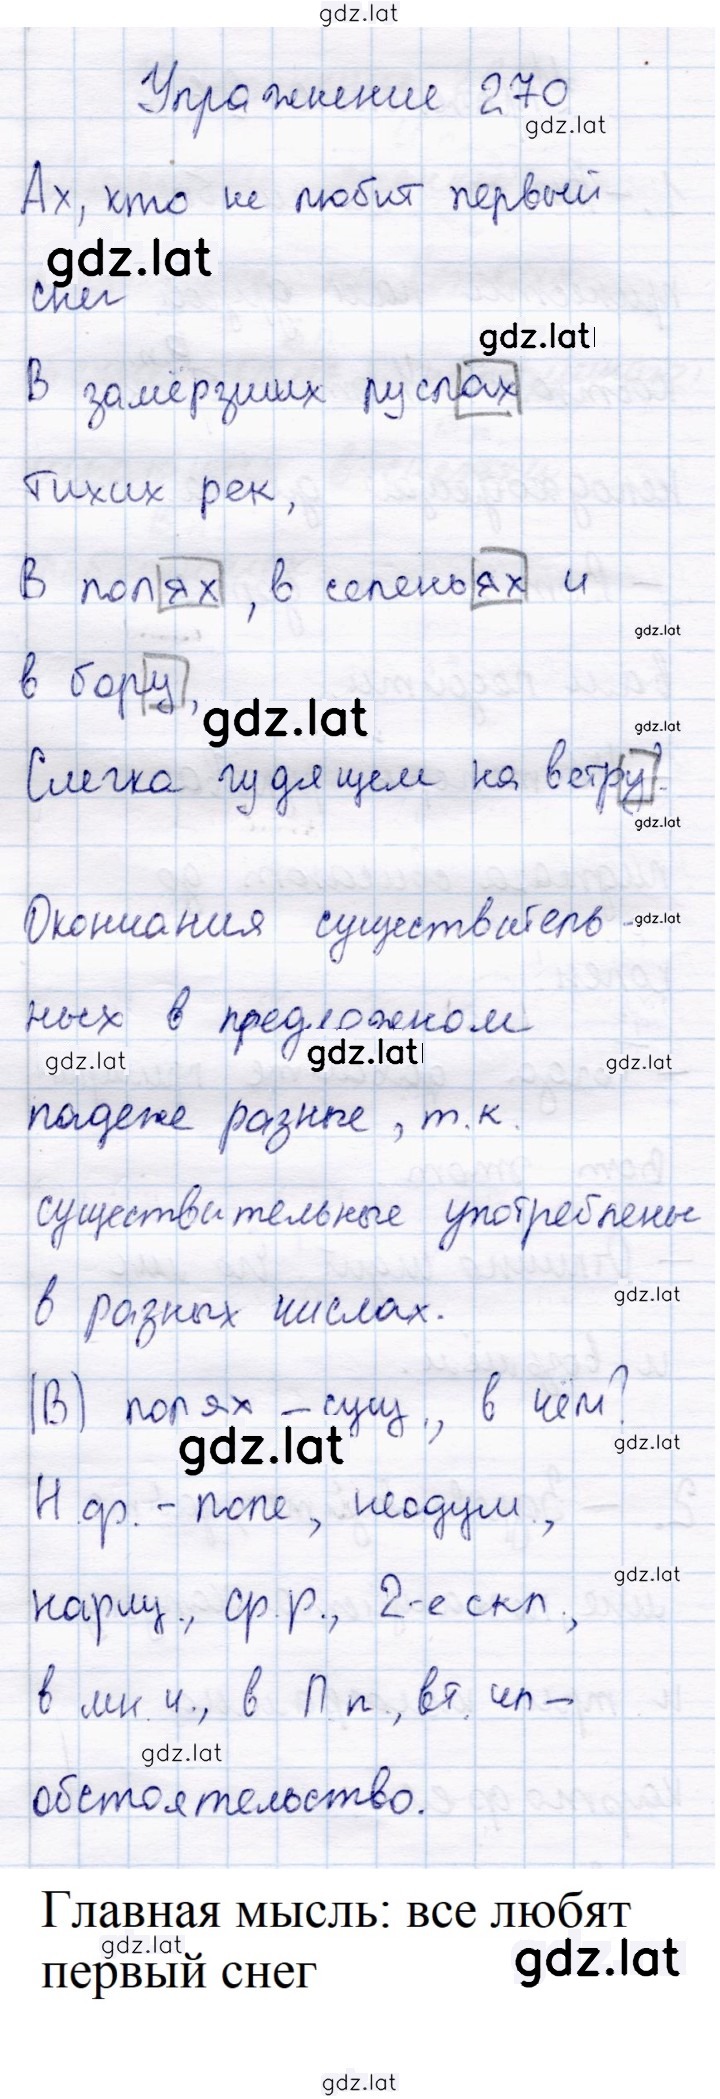 gdz.lat
Упражнение 270
gdz.lat
Ах, кто не любит первый
gdz.lat
снег
gdz.lat
В замёрзших руслах
тихих рек,
В полях, в селеньях и
gdz.lat
в бору,
gdz.lat
gdz.lat
Слегка гудящем на ветру?
gdz.lat
Окончания существитель-
gdz.lat
ных в предложном
gdz.lat
gdz.lat
gdz.lat
падеже разные, т.к.
существительные употреблены
в разных числах.
gdz.lat
(В) полях – сущ., в чём?
gdz.lat
gdz.lat
Н.ф. - поле, неодуш.,
gdz.lat
нариц., ср.р., 2-е скл.,
в мн.ч., в П.п., вт. чл –
gdz.lat
обстоятельство.
Главная мысль: все любят
gdz.lat
gdz.lat
первый снег
gdz.lat